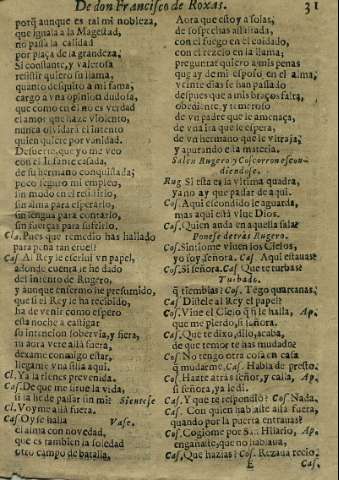 De don Francisco de Roxas. 31
porq̃ aunque es tal mi nobleza,
que iguala a la Magestad,
no passa la calidad
por plaça de la grandeza:
Si constante, y valerosa
resistir quiero su llama,
quanto desquito a mi fama,
cargo a vna opinion dudosa,
que como en el no es verdad
el amor que haze violento,
nunca olvidarà el intento
quien quiere por vanidad.
De suerte que yo me veo
con el Infante casada,
de su hermano conquistada;
poco seguro mi empleo,
sin modo en el resistirlo,
sin alma para esperarlo,
sin lengua para contarlo,
sin fuerças para sufrirlo.
Cla. Pues que remedio has hallado
para pena tan cruel?
Cas. Al Rey le escrivi vn papel,
adonde cuenta le he dado
del intento de Rugero,
y aunque enfermo he presumido,
que si el Rey le ha recibido,
ha de venir como espero
esta noche a castigar
su intencion sobervia, y fiera,
tu aora vete allà fuera,
dexame conmigo estar,
llegame vna silla aqui.
Cl. Ya la tienes prevenida.
Cas. De que me sirve la vida,
si la he de passar sin mi? Sientese
Cl. Voyme allà fuera.
Cas. Oy se halla Vase.
el alma con novedad,
que es tambien la soledad
otro campo de batalla.
Aora que estoy a solas,
de sospechas assaltada,
con el fuego en el cuidado,
con el rezelo en la llama;
preguntar quiero a mis penas
que ay de mi esposo en el alma,
veinte dias se han passado
despues que a mis braços falta,
obediente, y temeroso
de vn padre que le amenaça,
de vna ira que le espera,
de vn hermano que le vltraja;
y apurando esta materia.
Salen Rugero y Coscorron escon-
diendose.
Rug. Si esta es la vltima quadra,
ya no ay que passar de aqui.
Cos. Aqui escondido le aguarda,
mas aqui està vive Dios.
Cas. Quien anda en aquella sala?
Ponese detras Rugero.
Cos. Sintiome viuen los Cielos,
yo soy señora. Cas. Aqui estauas?
Cos. Si señora. Cas. Que te turbas?
Turbado.
q̃ tiemblas? Cos. Tẽgo quartanas.
Cas. Distele al Rey el papel?
Cos. Vive el Cielo q̃ si le halla, Ap.
que me pierdo, si señora.
Cas. Que te dixo, dilo, acaba,
de que temor te has mudado?
Cos. No tengo otra cosa en casa
q̃ mudarme. Cas. Habla de presto.
Cos. Harete atràs señor, y calla, Ap.
si señora, ya le di.
Cas. Y que te respondiò? Cos. Nada.
Cas. Con quien hablaste allà fuera,
quando por la puerta entrauas?
Cos. Cogiome por San Hilario, Ap.
engañaste, que no hablaua,
Cas. Que hazias? Cos. Rezaua recio.
E Cas.